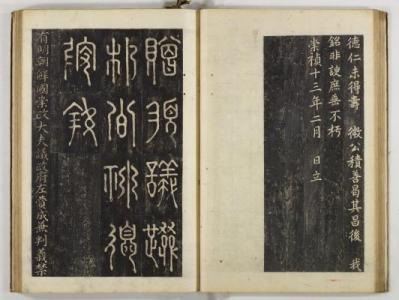 德仁未得壽 微公積善曷其昌後 我
銘非諛庶垂不朽
崇禎十三年二月 日立
贈領議政
朴公神道
碑銘
有明朝鮮國崇政大夫議政府左贊成兼判義禁